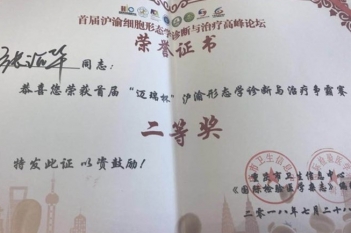 首届沪渝细胞形态学诊断与治疗高峰论坛
荣誉证书
同志：
恭喜您荣获首届“迈瑞杯”沪渝形态学诊断与治疗争霸赛
二等奖
特发此证 以资鼓励！
重庆市卫生信息中心
《国际检验医学杂志》
二零一八年七月二十八